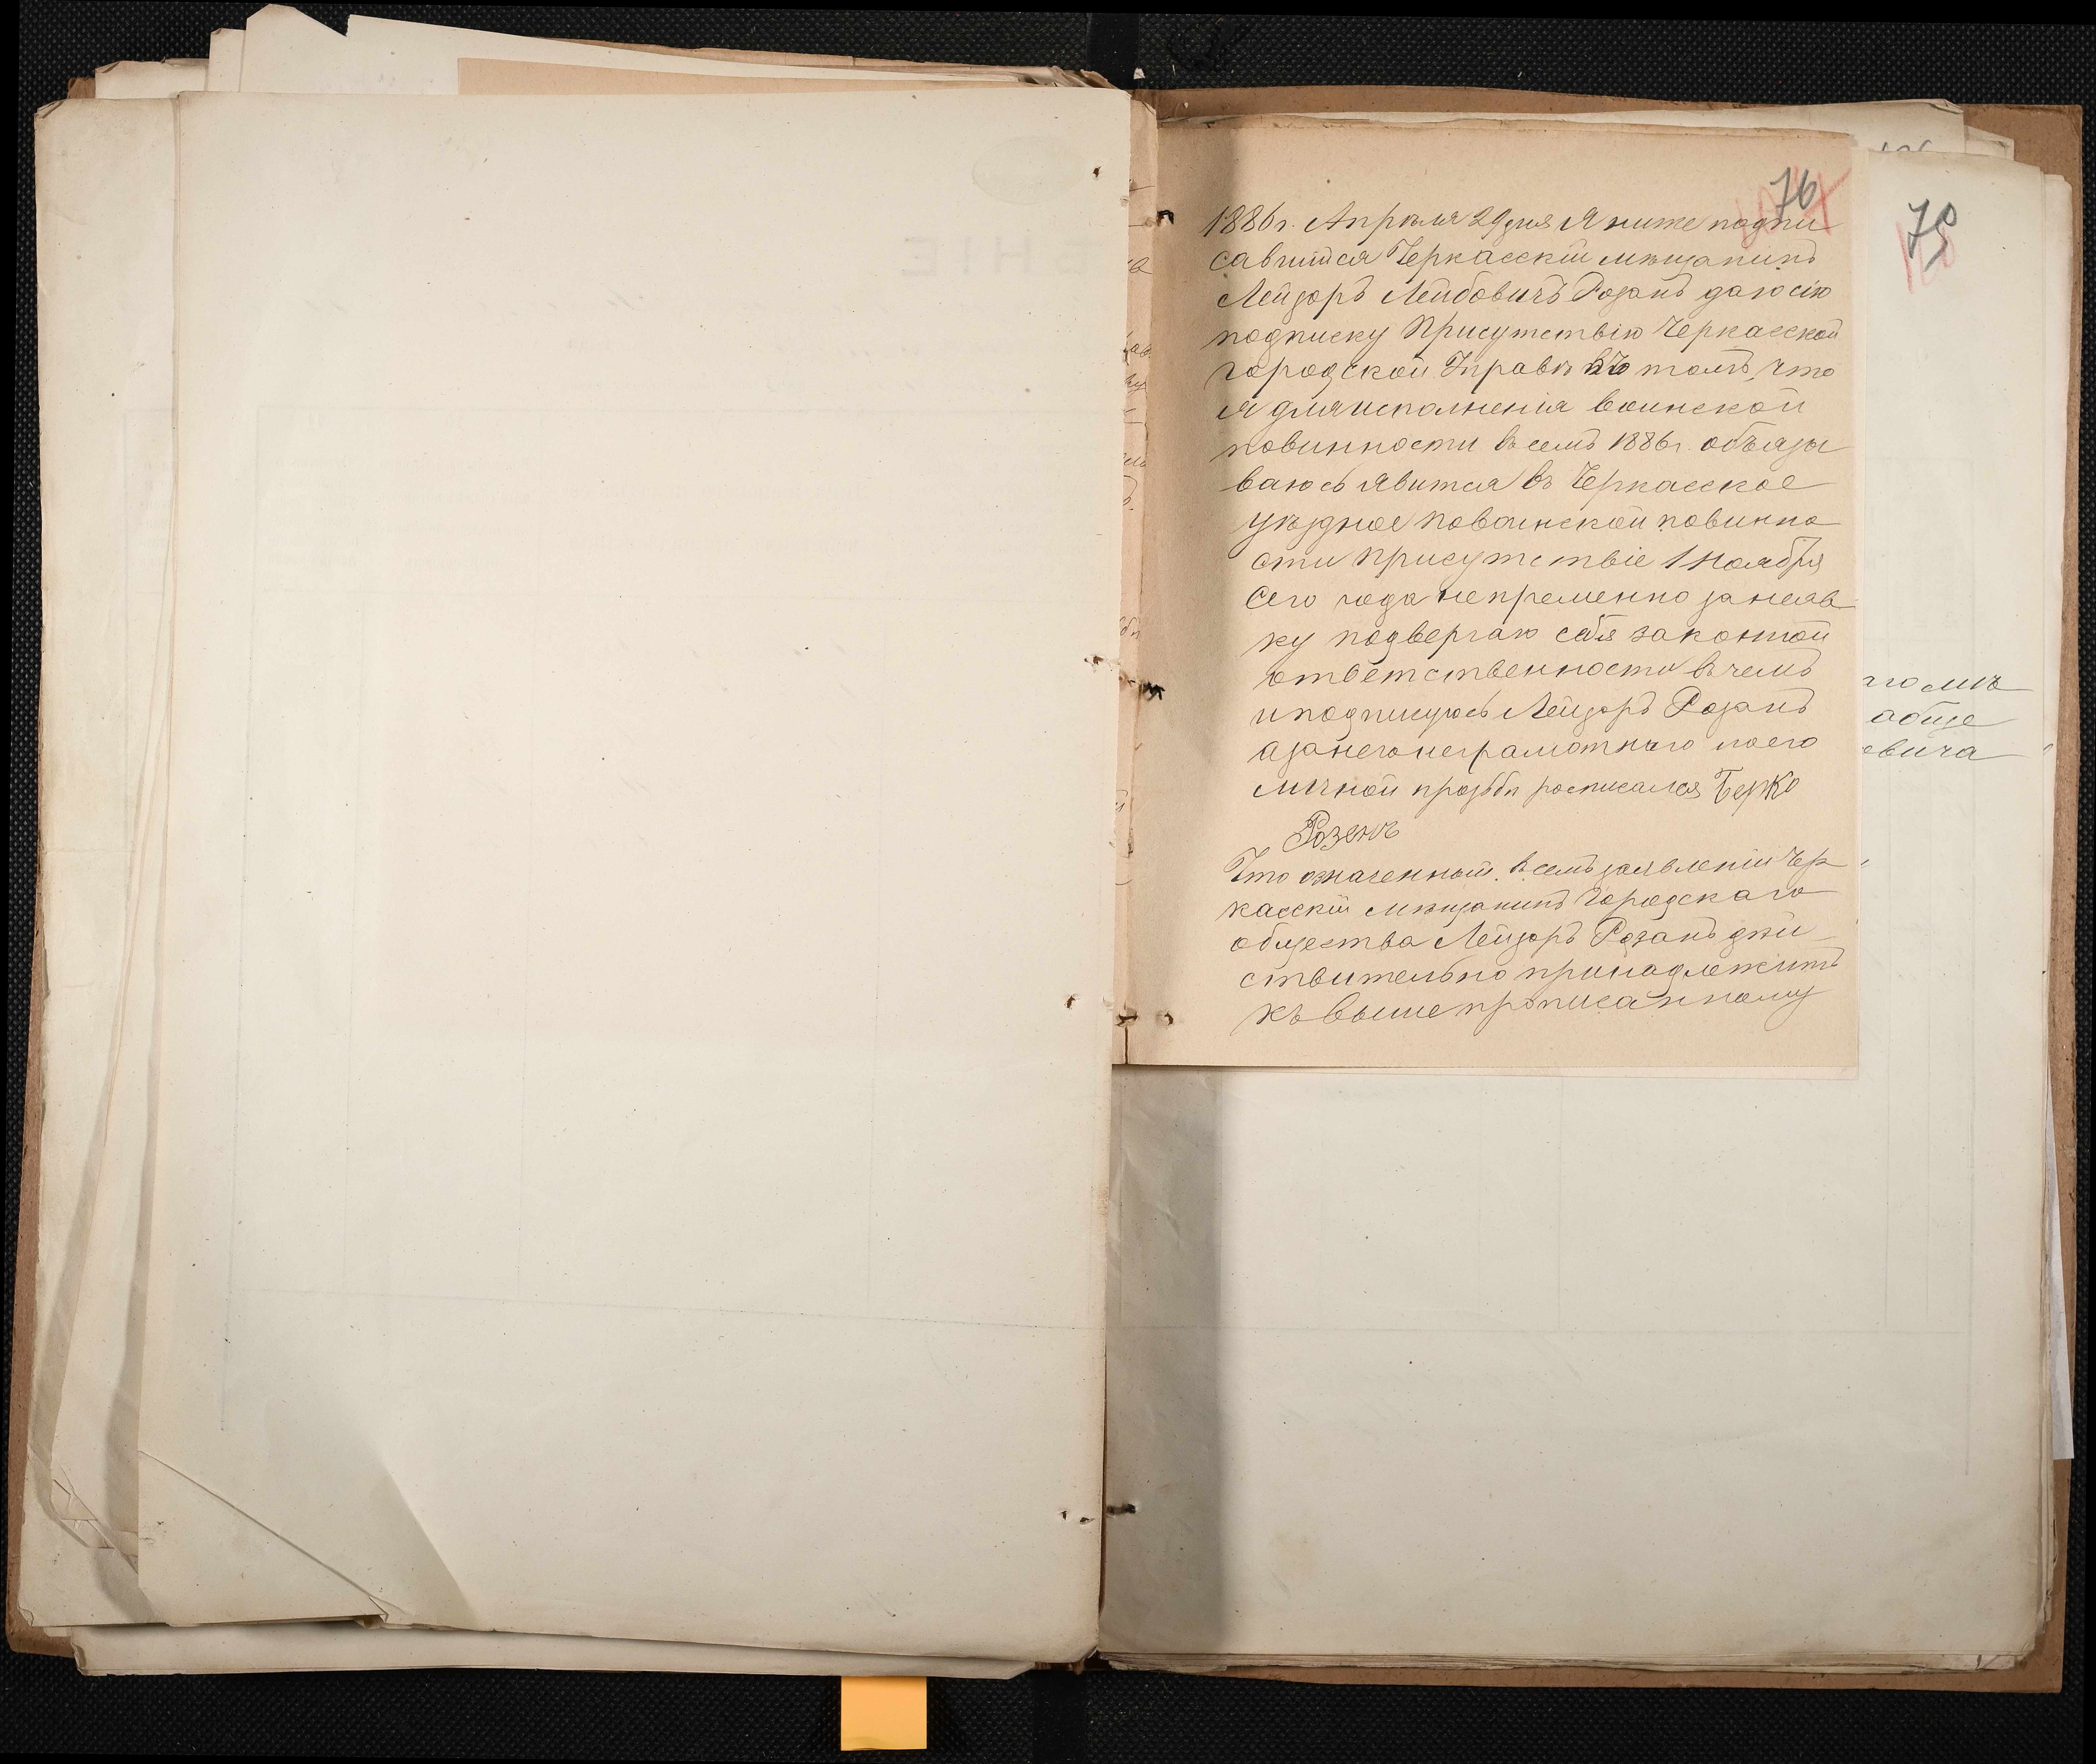 76
75
1886г. Апрѣля 29 дня Я ниже подпи
савшийся Черкасскій мѣщанинъ
Лейзоръ Лейбовичъ Розанъ даю сію
подписку Присутствію Черкасской
городской Управѣ въ томъ, что
я для исполненія воинской
повинности въ семъ 1886г. объязы
ваюсь явится въ Черкасское
уѣздное по воинской повинно
сти присутствіе 1 Ноября
Сего года непременно за неяв
ку подвергаю себя законной
ответственности въ чемъ
и подписуюсь Лейзоръ Розанъ
а за него неграмотного по его
личной прозьбѣ росписался Берко
Розенъ
Что означенный въ семъ заявленіи Чер
касскій мѣщанинъ Городскаго
общества Лейзоръ Розанъ дѣй
ствительно принадлежитъ
къ вышепрописанному
обще
евича